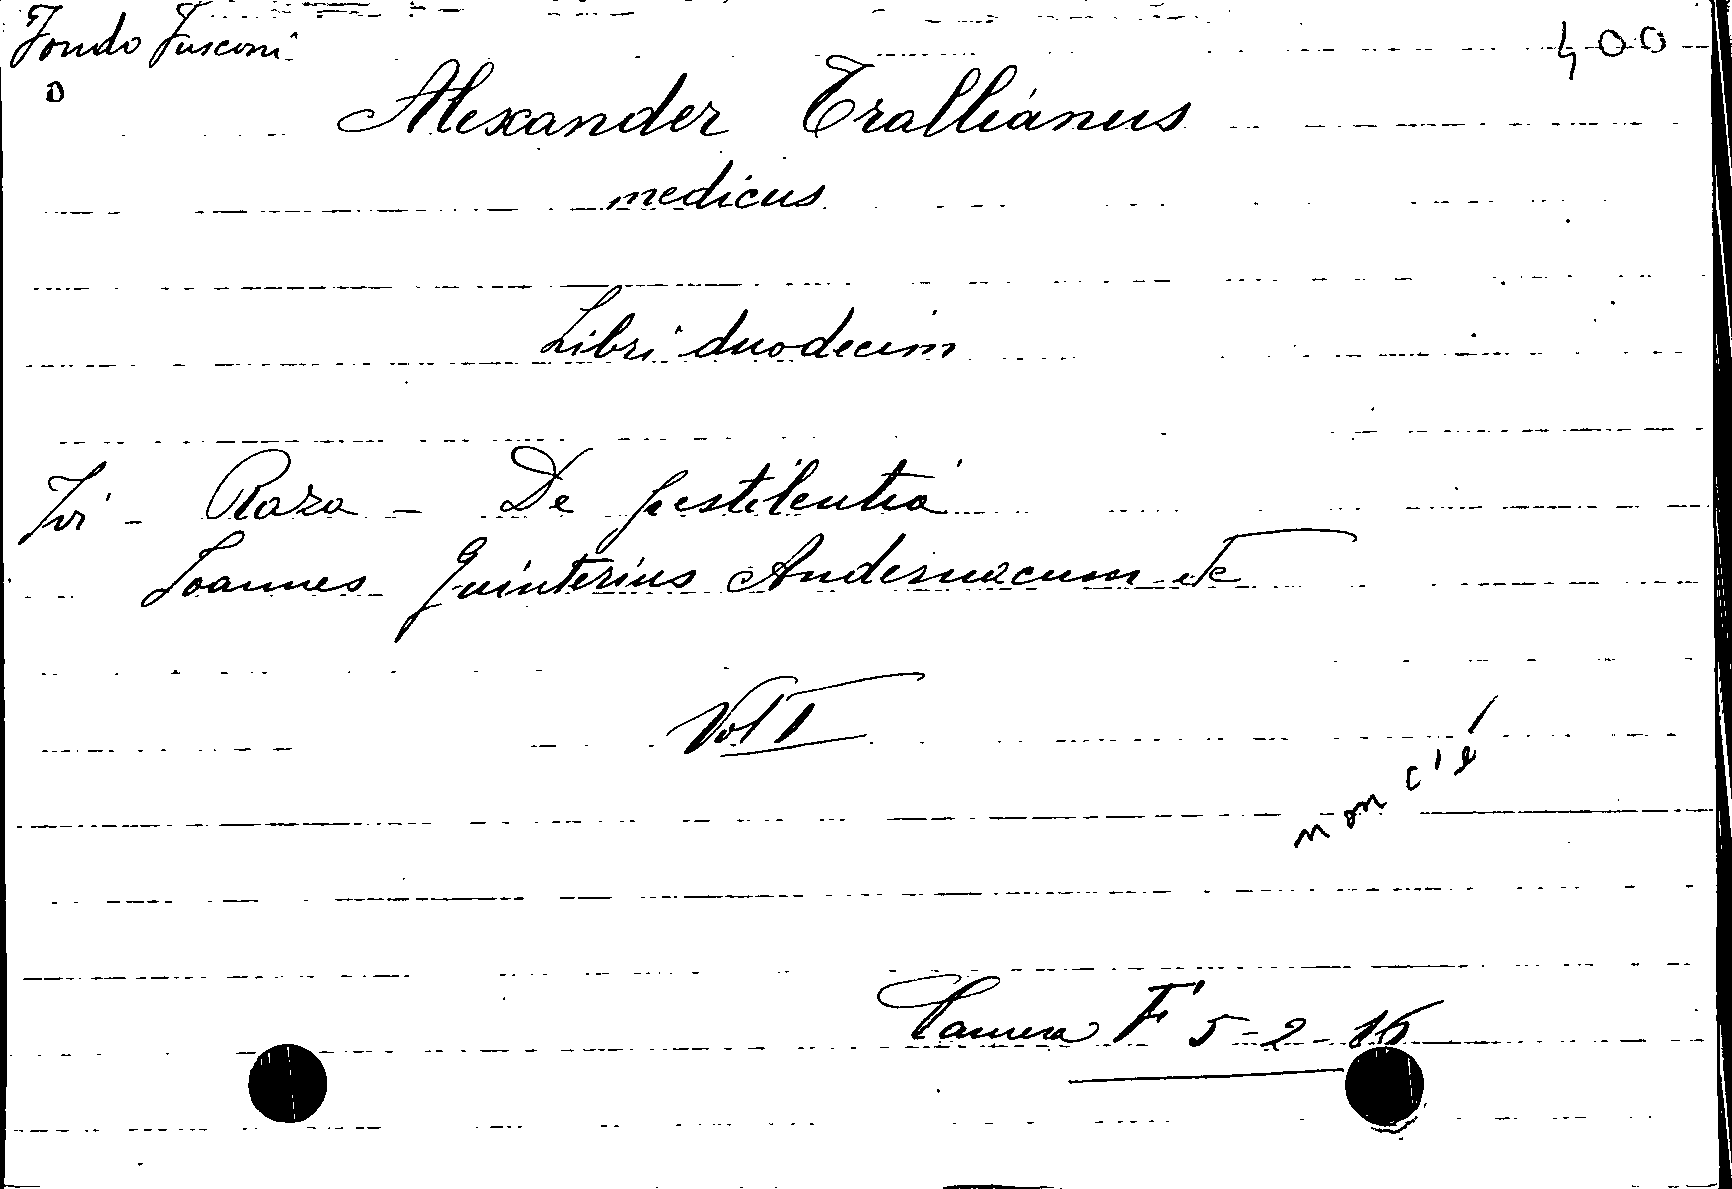 Fondo Fusconi
400
D
Alexander Trallianus
medicus
Libri duodecim
Ivi - Raza - De pestilentia
Joannes Guinterius Andernacum etc
Vol I
non c'è
Camera F 5-2-16